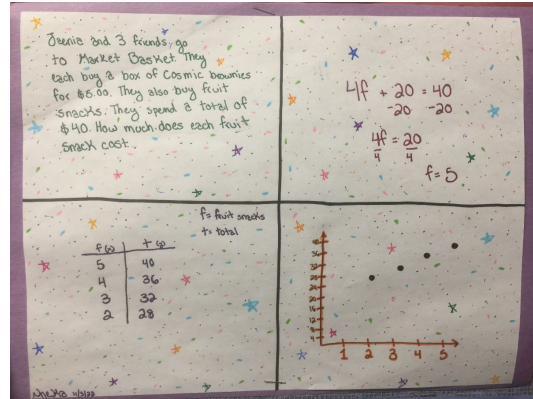 Jaenia and 3 friends, go
to Market Basket. They
each buy a box of Cosmic brownies
for $5.00. They also buy fruit
snacks. They spend a total of
$40. How much does each fruit
snack cost
4f + 20 = 40
-20 -20
4f = 20
4 4
f= 5
f= fruit snacks
t= total
f ($) t ($)
5 40
4 36
3 32
2 28
40
36
32
28
24
20
16
12
8
4
1 2 3 4 5